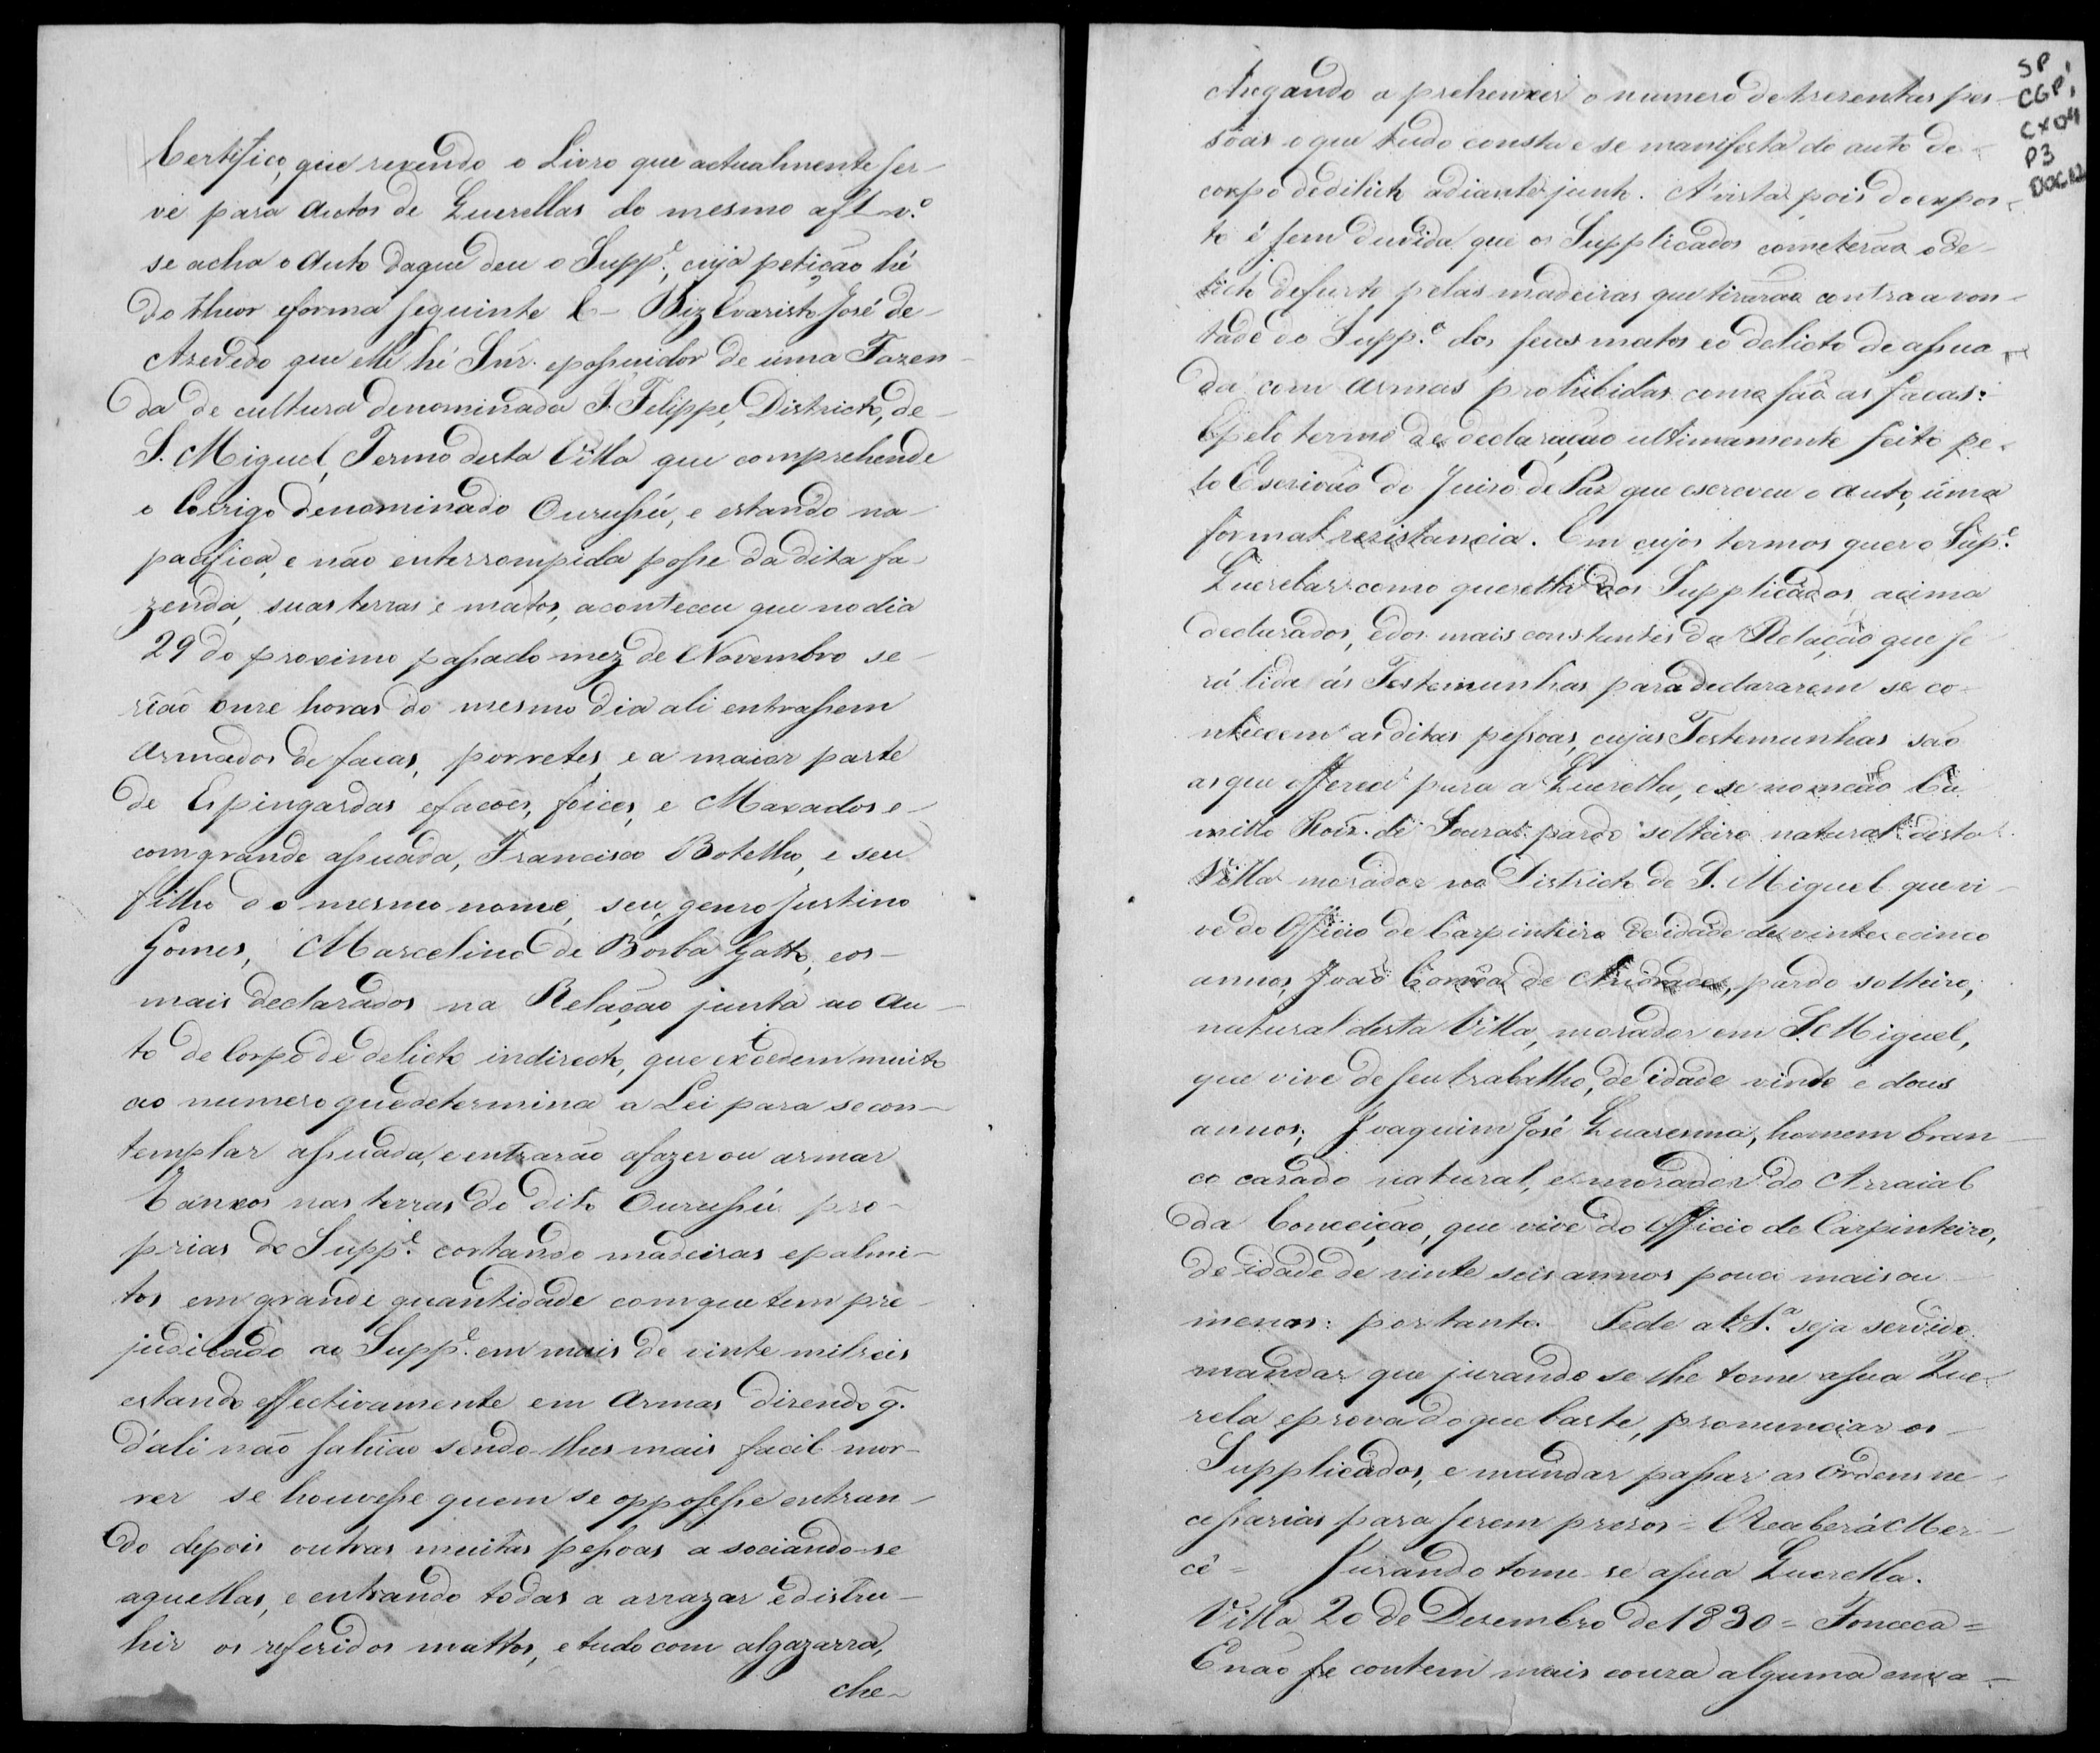 Certifico, que revendo o Livro que actualmente ser-
ve para Autos de Querellas do mesmo a f1 v.º
se acha o Auto daque deu o Supp.e, cuja petição hé
do theor eforma seguinte E - Diz Evaristo José de-
Azevedo que elle hé Snr. epossuidor de uma Fazen-
da de cultura denominada S. Felippe, Districto, de-
S. Miguel, Termo desta Villa que comprehende
o Corrigo denominado Ourussú, e estando na-
pacifica, e não enterrompida posse da dita fa-
zenda, suas terras e matos, aconteceu que no dia
29 do proximo passado mez de Novembro se-
rião onze horas do mesmo dia ali entrassem
Armados de facas, porretes, e a maior parte
de Espingardas efacões, foices, e Maxados e-
comgrande assuada, Francisco Botelho, e seu
filho do mesmo nome, seu genro Justino
Gomes, Marcelino de Borba Gatto, eos-
mais declarados na Relação junta ao Au-
to de Corpo de delicto indirecto, que excedem muito
ao numero quedetermina a Lei para secon-
templar assuada, e entrarão afazer ou armar
Ranxos nas terras do dito Ourussú pro-
prias do Supp.e cortando madeiras epalmi-
tos em grande quantidade comque tem pre-
judicado ao Supp.e em mais de vinte milreis
estando effectivamente em Armas dizendo q.
d'ali não sahião sendo-lhes mais facil mor-
rer se houvesse quem se oppozesse entran-
do depois outras muitas pessoas a sociando-se
aquellas, e entrando todas a arrazar edistru-
hir os referidos mattos, e tudo com algazarra,
che-
SP
CGP1
CX04
P3
DOC12
chegando a prehenxer o numero detrezentas pes-
sôas o que tudo consta e se manifesta do auto de
corpo dedilicto adiante junto. A' vista pois doexpos-
to é sem duvida que os Supplicados cometerão ode-
licto defurto pelas madeiras que tirarão contra a von-
tade do Supp.e dos seus matos eo delicto de assua-
da com armas prohibidas como são as facas:
Epelo termo de declaração ultimamente feito pe-
lo Escrivão do Juizo de Paz que escreveu o auto, úma
formal rezistancia. Em cujos termos quer o Sup.e
Querelar como querella dos Supplicados acima
declarados, edos mais constantes da Relação que se
rá lida ás Testemunhas para declararem se co-
nhecem as ditas pessoas, cujas Testemunhas são
as que offerece para a Querella, e se nomeão Ca
millo Roiz. de Souza pardo solteiro natural desta
Villa morador no Districto de S. Miguel que vi-
ve do Officio de Carpinteiro de idade de vinte e cinco
annos, João Corrêa de Andrade, pardo solteiro,
natural desta Villa, morador em S. Miguel,
que vive de seu trabalho, de idade vinte e dous
annos; Joaquim José Quaresma, homem bran-
co cazado natural, e morador do Arraial
da Conceição, que vive do Officio de Carpinteiro,
de idade de vinte seis annos pouco mais ou
menos: portanto - Pede a V.S.ª seja servido
mandar que jurando se lhe tome asua Que-
rela eprovado que baste, pronunciar os-
Supplicados, e mandar passar as Ordens ne-
cessarias para serem prezos = E Receberá Mer-
cê = Jurando tome-se asua Querella.
Villa 20 de Dezembro de 1830 = Fonceca =
E não se contem mais couza alguma em a-